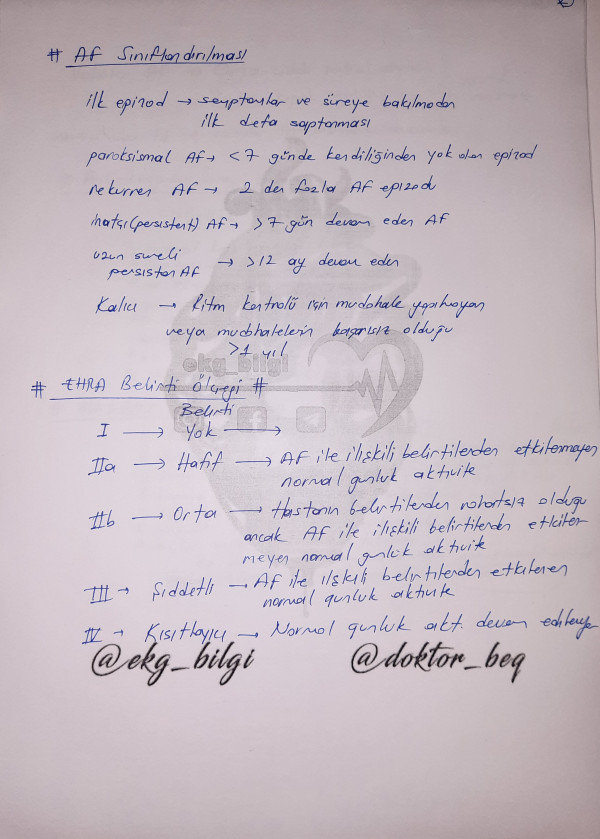 # AF Sınıflandırılması
ilk epizod → semptomlar ve süreye bakılmadan
ilk defa saptanması
paroksismal AF → <7 günde kendiliğinden yok olan epizod
rekurren AF → 2 den fazla AF epizodu
inatçı (persistent) AF → >7 gün devam eden AF
uzun süreli → >12 ay devam eden
persistan AF
Kalıcı → Ritm kontrolü için müdahale yapılmayan
veya müdahalelerin başarısız olduğu
>1 yıl
ekg_bilgi
# EHRA Belirti Ölçeği #
Belirti
I → Yok →
IIa → Hafif → AF ile ilişkili belirtilerden etkilenmeyen
normal günlük aktivite
IIb → Orta → Hastanın belirtilerden rahatsız olduğu
ancak AF ile ilişkili belirtilerden etkilen
meyen normal günlük aktivite
III → Şiddetli → AF ile ilşkili belirtilerden etkilenen
normal günlük aktivite
IV → Kısıtlayıcı → Normal günlük akt. devam edilemeyen
@ekg_bilgi @doktor_beq